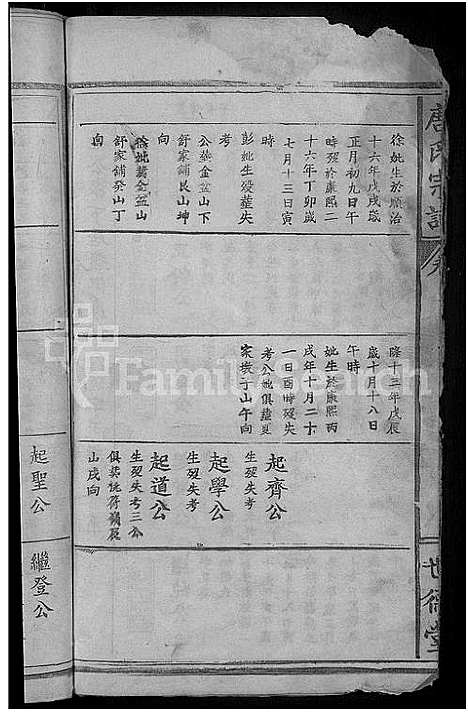 唐氏宗譜
世德堂
徐妣生於順治
十六年戊戌歲
正月初九日午
時歿於康熙二
十六年丁卯歲
七月十三日寅
時
彭妣生歿葬失
考
公葬金盆山下
舒家鋪艮山坤
向
徐妣葬金盆山
舒家鋪癸山丁
向
隆十三年戊辰
歲十月十八日
午時
妣生於康熙丙
戌年十月二十
一日酉時歿失
考公妣俱葬夏
家嶺子山午向
起齊公
生歿失考
起學公
生歿失考
起道公
生歿失考三公
俱葬
山戌向
起聖公
繼登公
FamilySearch